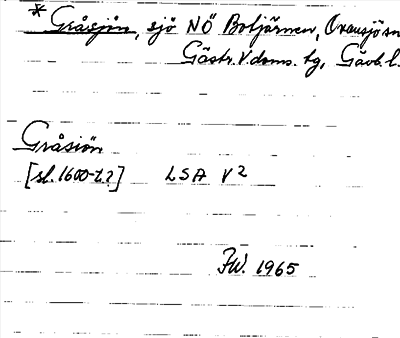 * Gråsjön, sjö NÖ Botjärnen, Oxansjön
Gästr. V doms. tg, Gävb. l.
Gråsiön
[sl. 1600-t.?] LSA V2
FW. 1965